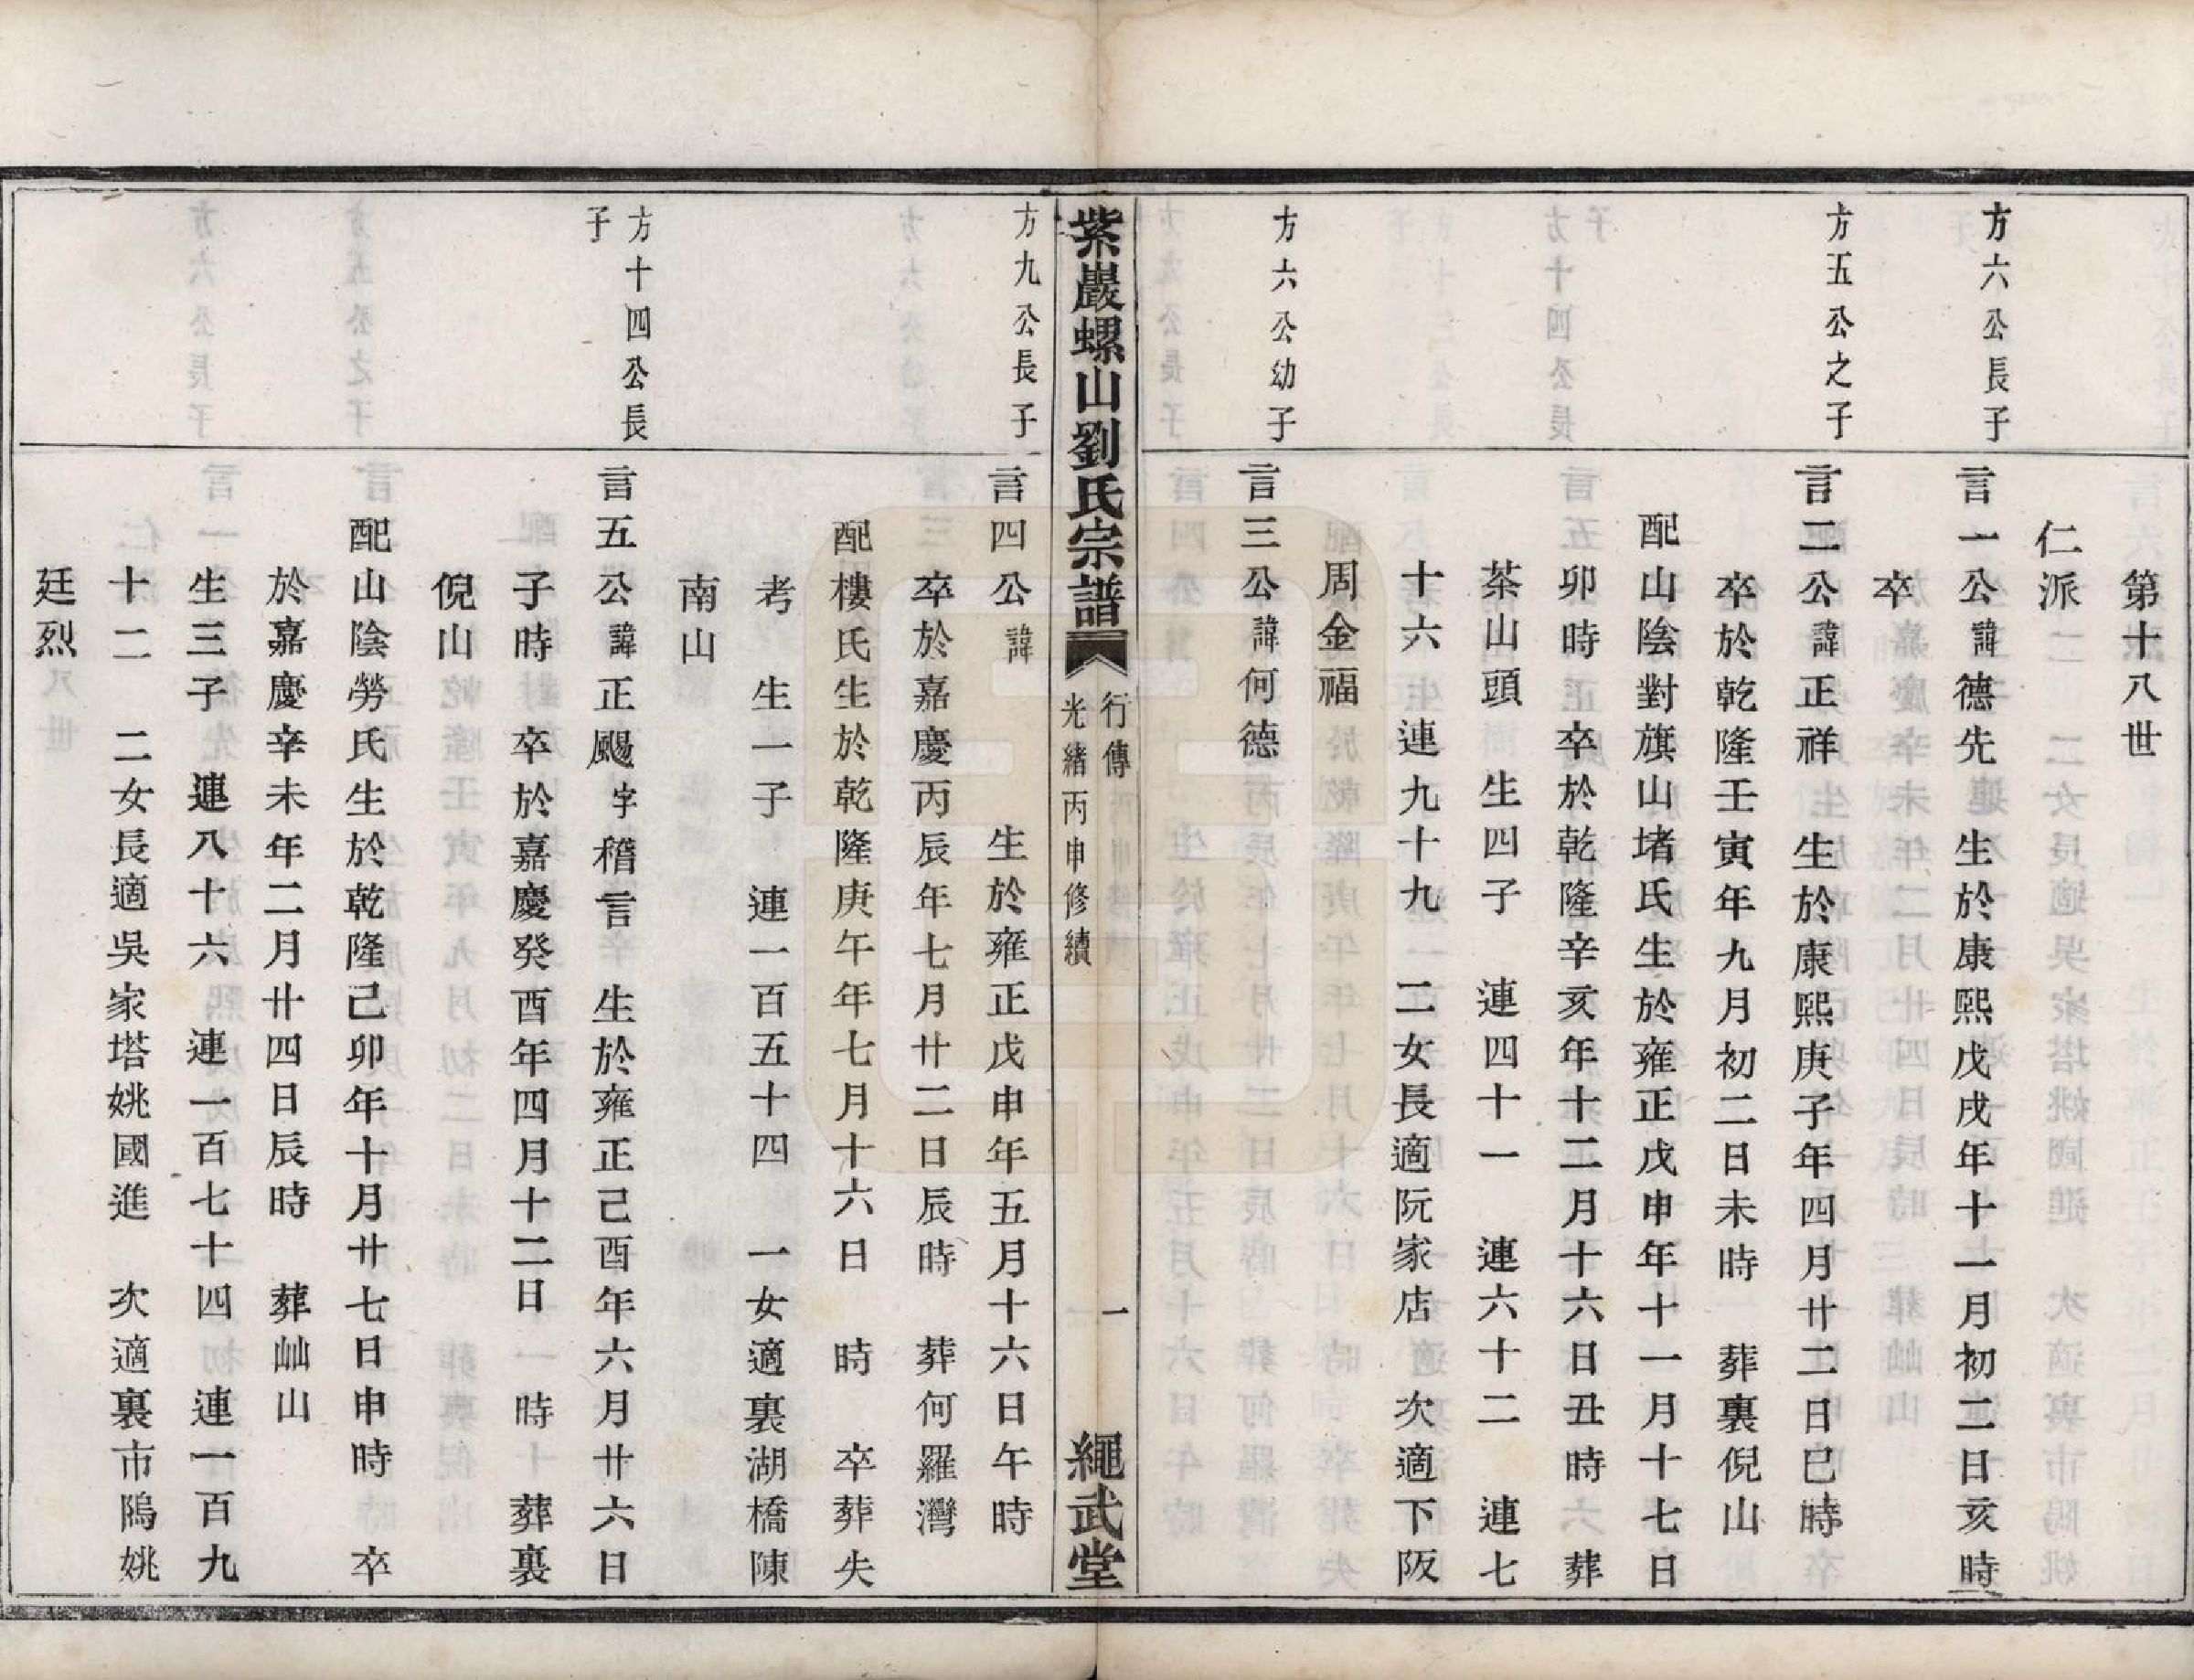 第十八世
仁派
方六公長子
言一公諱德先　生於康熙戊戌年十一月初二日亥時
卒
方五公之子
言二公諱正祥　生於康熙庚子年四月廿二日巳時
卒於乾隆壬寅年九月初二日未時　葬裏倪山
配山陰對旗山堵氏生於雍正戊申年十一月十七日
卯時　卒於乾隆辛亥年十二月十六日丑時　葬
茶山頭　生四子　連四十一　連六十二　連七
十六　連九十九　二女長適阮家店　次適下阪
周金福
方六公幼子
言三公諱何德
紫巖螺山劉氏宗譜
行傳
光緒丙申修續
一
繩武堂
方九公長子
言四公諱　生於雍正戊申年五月十六日午時
卒於嘉慶丙辰年七月廿二日辰時　葬何羅灣
配樓氏生於乾隆庚午年七月十六日　時　卒葬失
考　生一子　連一百五十四　一女適裏湖橋陳
南山
方十四公長
子
言五公諱正颺字稽言　生於雍正己酉年六月廿六日
子時　卒於嘉慶癸酉年四月十二日　時　葬裏
倪山
配山陰勞氏生於乾隆己卯年十月廿七日申時　卒
於嘉慶辛未年二月廿四日辰時　葬岫山
生三子　連八十六　連一百七十四　連一百九
十二　二女長適吳家塔姚國進　次適裏市隖姚
廷烈